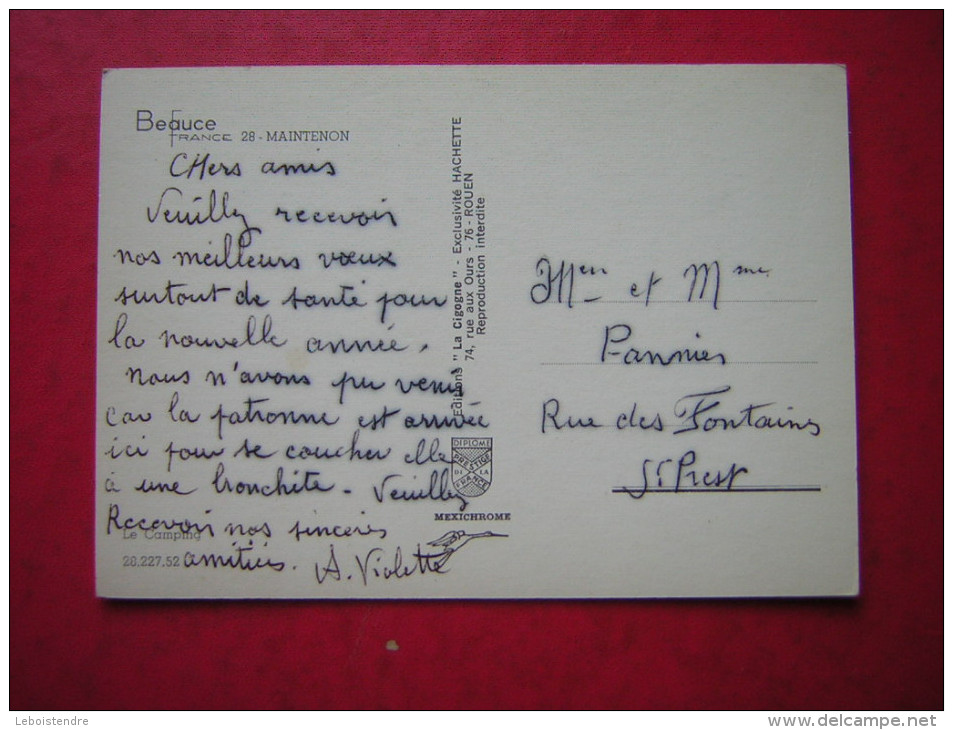 Beauce
FRANCE 28 - MAINTENON
CHers amis
Veuillez recevoir
nos meilleurs vœux
surtout de santé pour
la nouvelle année.
nous n'avons pu venir
car la patronne est arrivée
ici pour se coucher elle
a une bronchite - Veuillez
Recevoir nos sincères
amitiés. A. Violette
Le Camping
28.227.52
Editions "La Cigogne" - Exclusivité HACHETTE
74, rue aux Ours - 76 - ROUEN
Reproduction interdite
DIPLOME
PRESTIGE
DE LA
FRANCE
MEXICHROME
et Mme
Pannier
Rue des Fontaines
St Prest
Leboistendre
www.delcampe.net